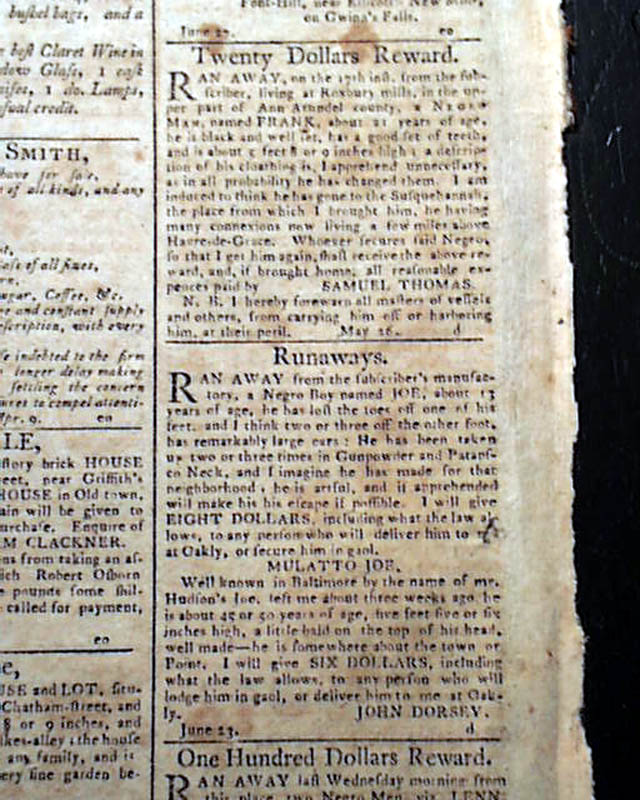 bushel bags, and a
best Claret Wine in
Window Glass, 1 cask
1 do. Lamps,
usual credit.
SMITH,
above for sale,
of all kinds, and any
of all sizes,
Sugar, Coffee, &c.
and constant supply
description, with every
indebted to the firm
longer delay making
settling the concern
to compel attenti-
Apr. 9. eo
LE,
story brick HOUSE
street, near Griffith's
HOUSE in Old town,
will be given to
purchase. Enquire of
M CLACKNER.
from taking an as-
which Robert Osborn
pounds some shil-
called for payment,
eo
HOUSE and LOT, situ-
Chatham-street, and
8 or 9 inches, and
alley; the house
any family, and is
very fine garden be-
Font-Hill, near Ellicott's New Mills,
on Gwins's Falls.
June 27. eo
Twenty Dollars Reward.
RAN AWAY, on the 17th inst. from the sub-
scriber, living at Roxbury mills, in the up-
per part of Ann Arundel county, a NEGRO
MAN, named FRANK, about 21 years of age,
he is black and well set, has a good set of teeth,
and is about 5 feet 8 or 9 inches high; a descrip-
tion of his cloathing is, I apprehend unnecessary,
as in all probability he has changed them. I am
induced to think he has gone to the Susquehannah,
the place from which I brought him, he having
many connexions now living a few miles above
Havre-de-Grace. Whoever secures said Negro,
so that I get him again, shall receive the above re-
ward, and, if brought home, all reasonable ex-
pences paid by SAMUEL THOMAS.
N. B. I hereby forewarn all masters of vessels
and others, from carrying him off or harboring
him, at their peril. May 26. d
Runaways.
RAN AWAY from the subscriber's manufac-
tory, a Negro Boy named JOE, about 13
years of age, he has lost the toes off one of his
feet, and I think two or three off the other foot,
has remarkably large ears: He has been taken
up two or three times in Gunpowder and Pataps-
co Neck, and I imagine he has made for that
neighborhood; he is artful, and if apprehended
will make his escape if possible. I will give
EIGHT DOLLARS, including what the law al-
lows, to any person who will deliver him to
at Oakly, or secure him in gaol.
MULATTO JOE,
Well known in Baltimore by the name of mr.
Hudson's Joe, left me about three weeks ago, he
is about 45 or 50 years of age, five feet five or six
inches high, a little bald on the top of his head,
well made—he is somewhere about the town or
Point. I will give SIX DOLLARS, including
what the law allows, to any person who will
lodge him in gaol, or deliver him to me at Oak-
ly. JOHN DORSEY.
June 23. d
One Hundred Dollars Reward.
RAN AWAY last Wednesday morning from
this place, two Negro Men, viz. LENN